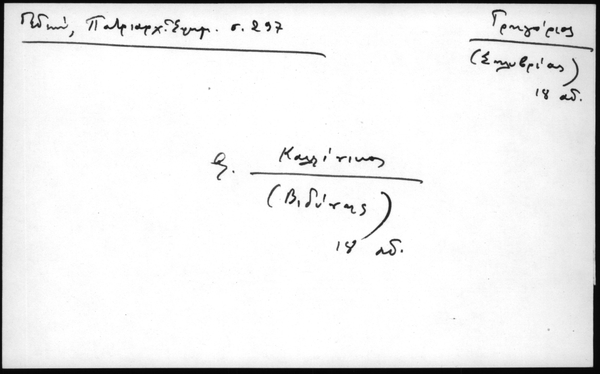 Γεδεών, Πατριαρχ. Εφημ. σ. 297
Γρηγόριος
(Σηλυβρίας)
18 αι.
β. Καλλίνικος
(Βιδύνης)
18 αι.